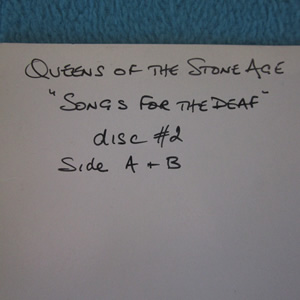 QUEENS OF THE STONE AGE
"SONGS FOR THE DEAF"
disc #2
Side A + B